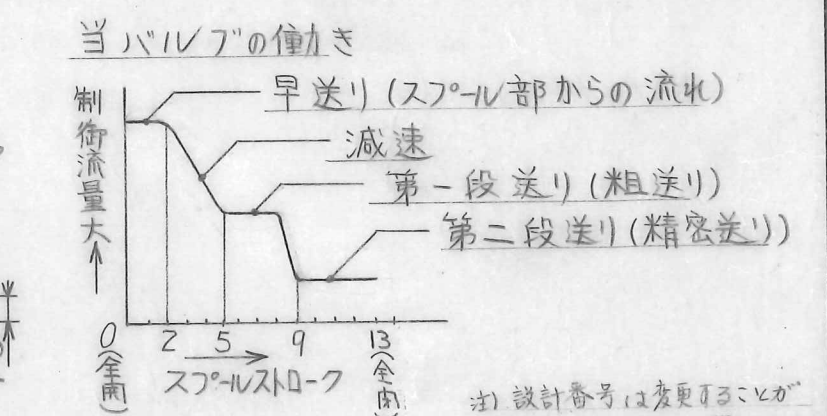 当バルブの働き
早送り(スプール部からの流れ)
減速
第一段送り(粗送り)
第二段送り(精密送り)
制御流量大
0 2 5 9 13
(全開)
スプールストローク
(全閉
注)設計番号は変更することが